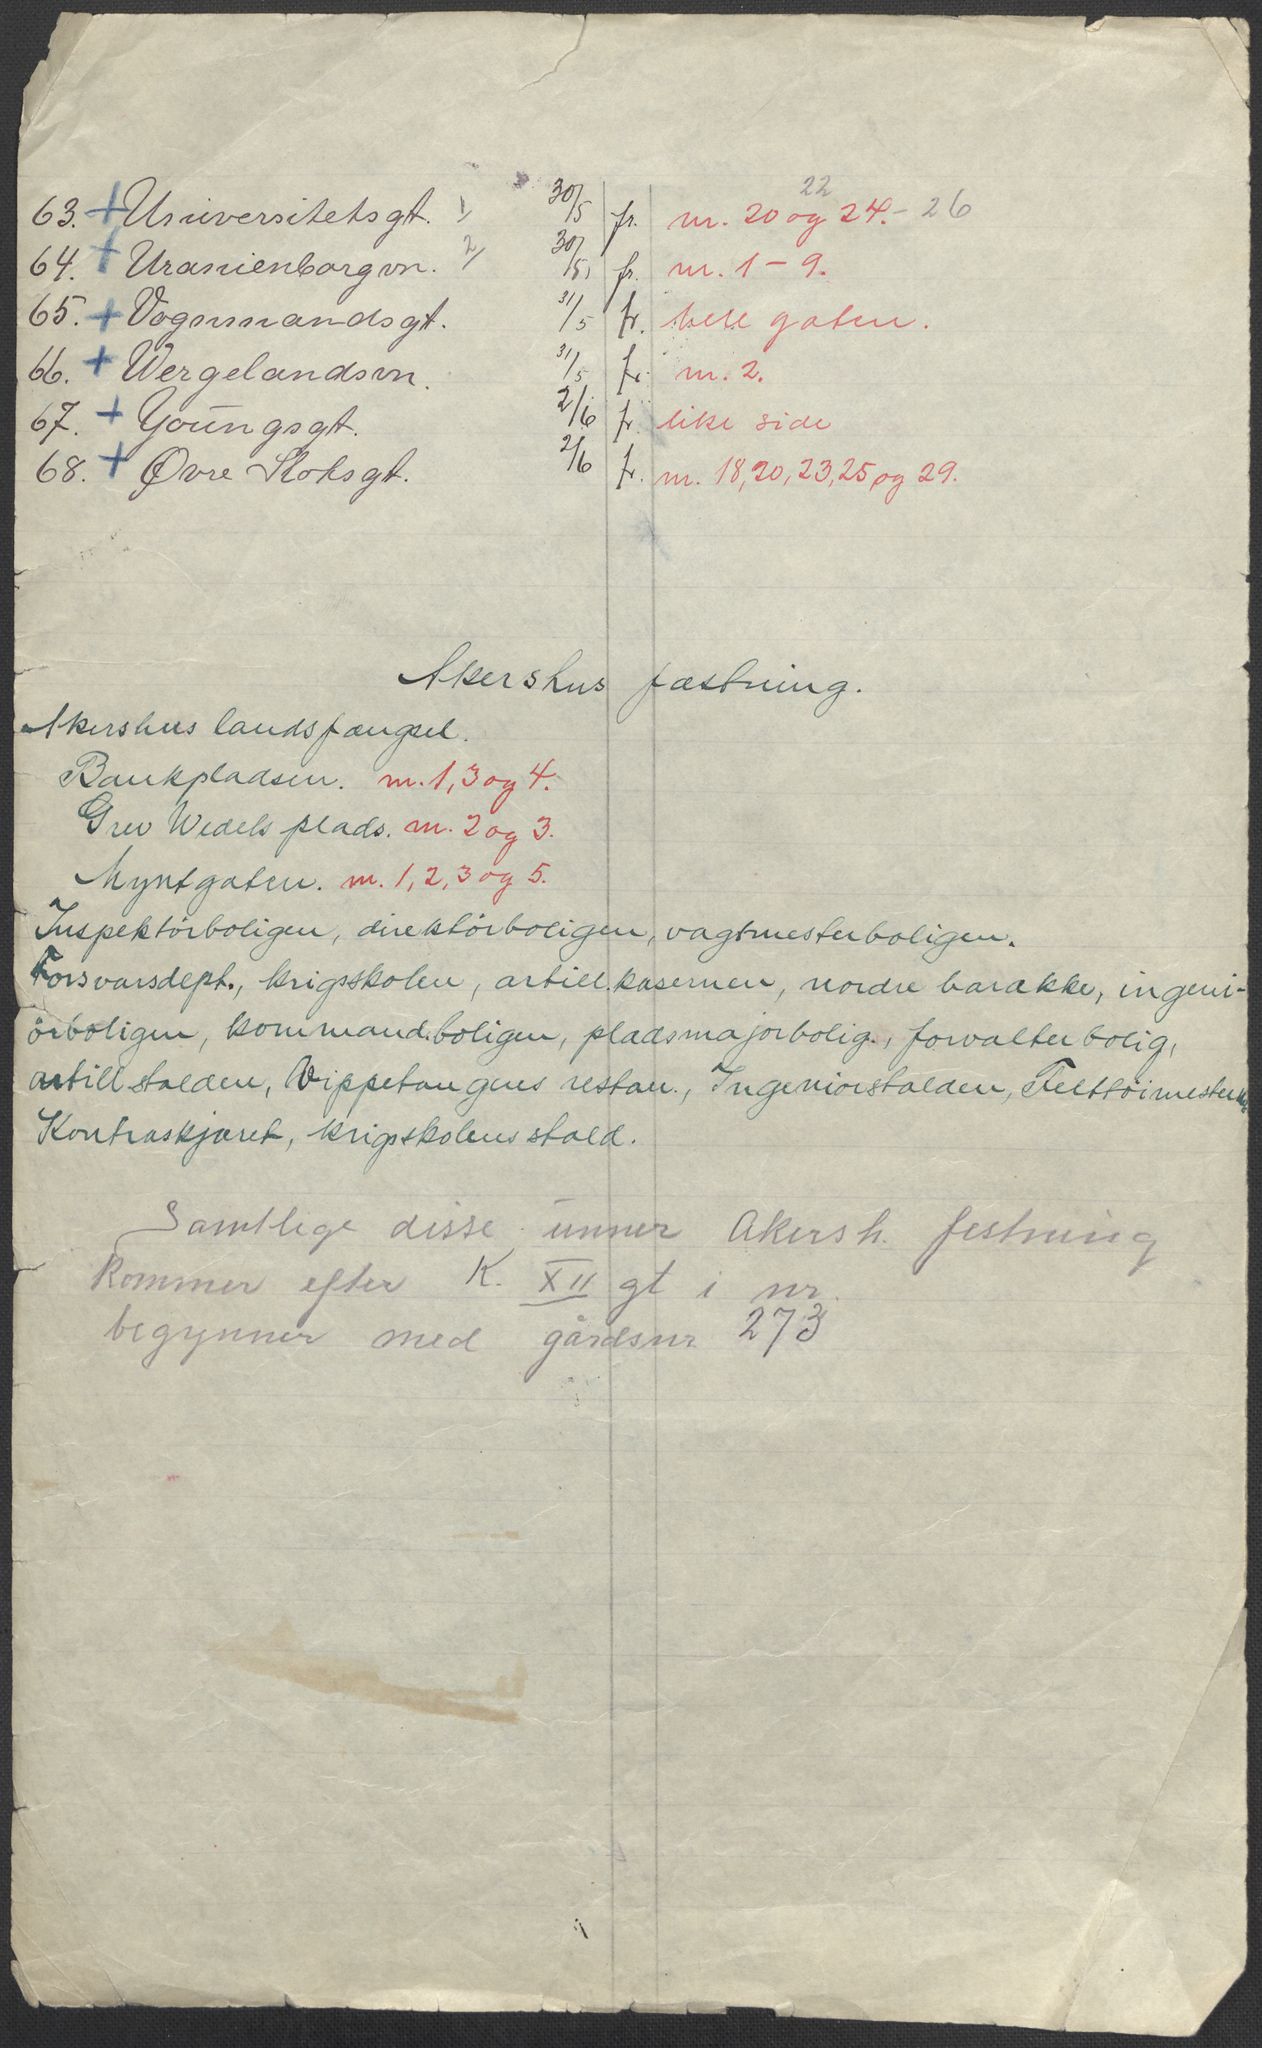 63. + Universitetsgt. 1/ 30/5 fr. nr. 20 og 22 24.- 26
64. + Uranienborgvn. 2/ 30/5 fr. nr. 1 - 9.
65. + Vognmandsgt. 31/5 fr. hele gaten.
66. + Wergelandsvn. 31/5 fr. nr. 2.
67. + Youngsgt. 2/6 fr. like side
68. + Øvre Slotsgt. 2/6 fr. nr. 18, 20, 23, 25 og 29.
Akershus fæstning.
Akershus landsfængsel.
Bankpladsen. nr. 1, 3 og 4.
Grev Wedels plads. nr. 2 og 3.
Myntgaten. nr. 1, 2, 3 og 5.
Inspektörboligen, direktörboligen, vagtmesterboligen.
Forsvarsdept., krigsskolen, artill.kasernen, nordre barakke, ingeni-
örboligen, kommand.boligen, pladsmajorbolig., forvalterbolig,
artillstalden, Vippetangens restau., Ingeniörstalden, Felttöimester
Kontraskjæret, krigsskolens stald.
Samtlige disse unner Akersh. festning
kommer efter K. XII gt i nr.
begynner med gårdsnr 273